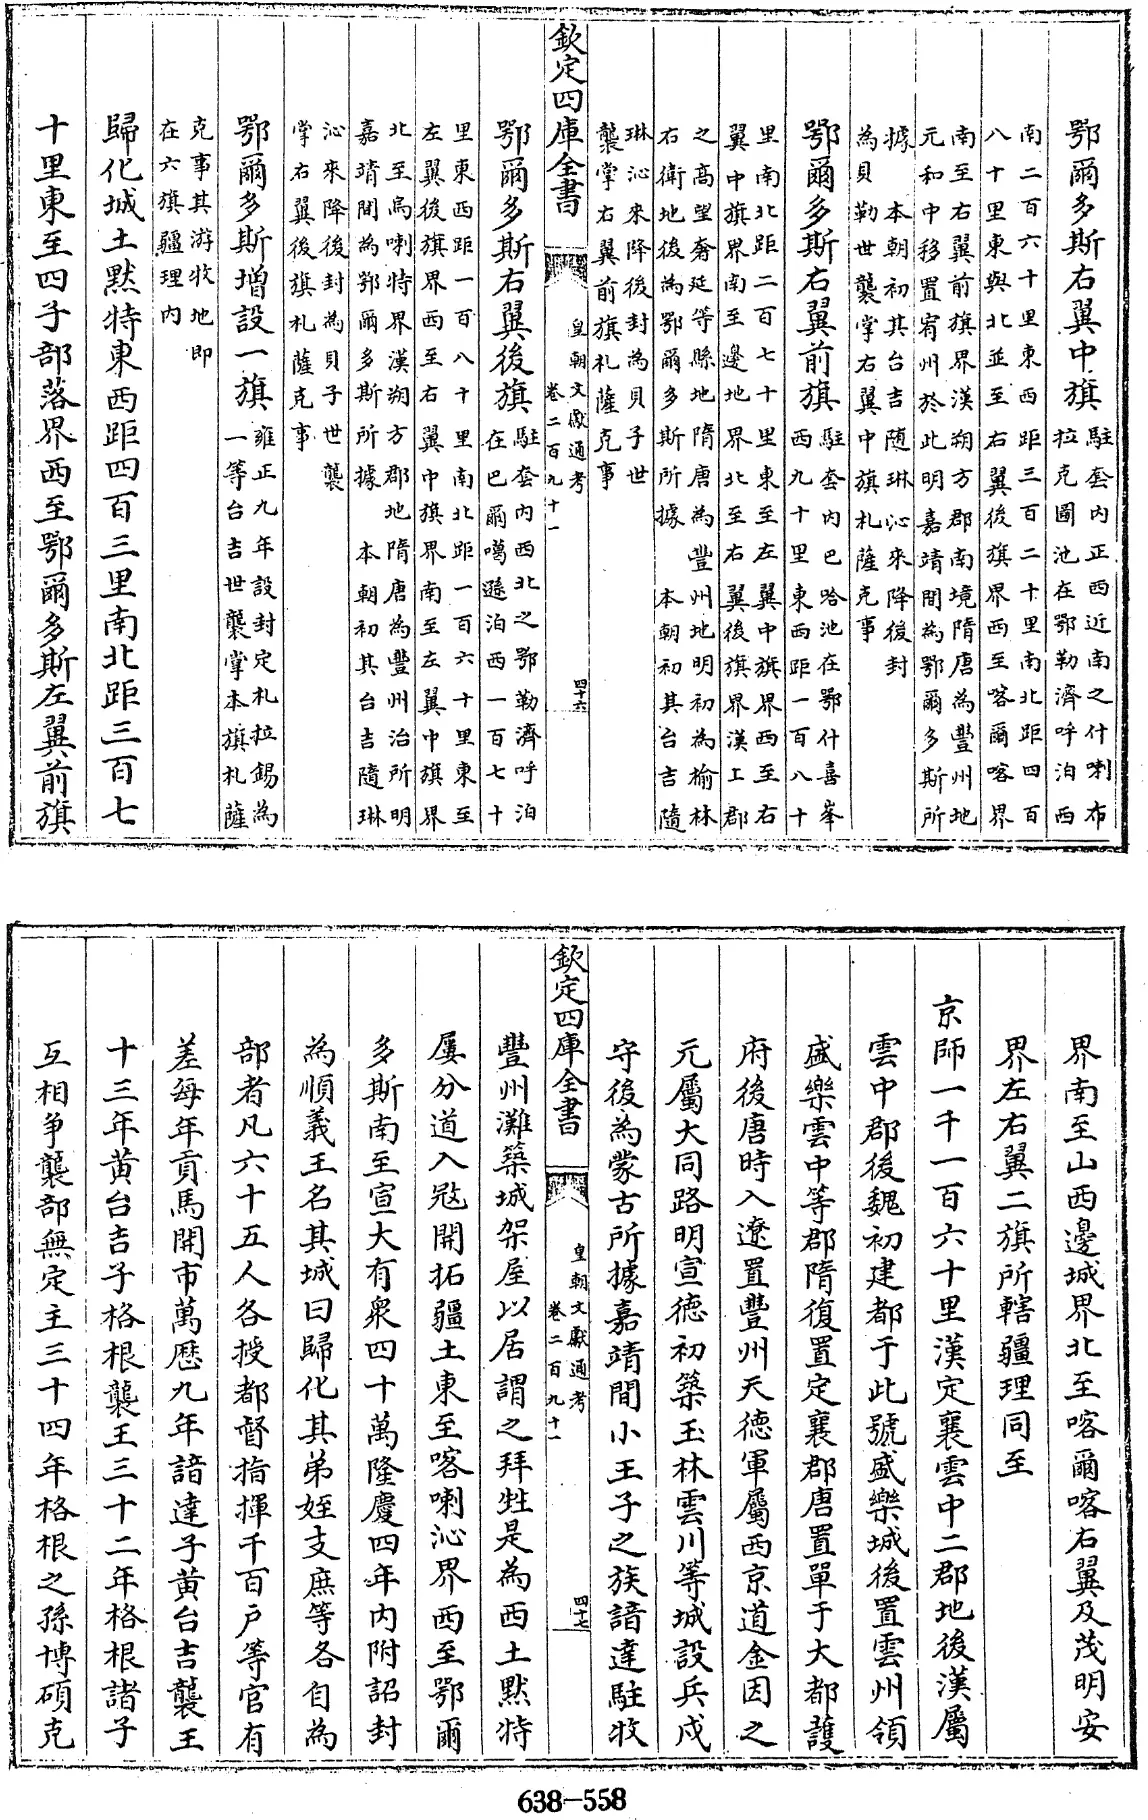 鄂爾多斯右翼中旗駐套内正西近南之什喇布
拉克圖池在鄂勒濟呼泊西
南二百六十里東西距三百二十里南北距四百
八十里東與北並至右翼後旗界西至喀爾喀界
南至右翼前旗界漢朔方郡南境隋唐為豐州地
元和中移置宥州於此明嘉靖間為鄂爾多斯所
據 本朝初其台吉随琳沁來降後封
為貝勒世襲掌右翼中旗札薩克事
鄂爾多斯右翼前旗駐套内巴哈池在鄂什喜峯
西九十里東西距一百八十
里南北距二百七十里東至左翼中旗界西至右
翼中旗界南至邊地界北至右翼後旗界漢上郡
之高望奢延等縣地隋唐為 豐州地明初為榆林
右衛地後為鄂爾多斯所據 本朝初其台吉隨
琳沁來降後封為貝子世
襲掌右翼前旗札薩克事
欽定四庫全書
皇朝文獻通考
卷二百九十一
四十六
鄂爾多斯右翼後旗駐套内西北之鄂勒濟呼泊
在巴爾噶遜泊西一百七十
里東西距一百八十里南北距一百六十里東至
左翼後旗界西至右翼中旗界南至左翼中旗界
北至烏喇特界漢朔方郡地隋唐為豐州治所明
嘉靖間為鄂爾多斯所據 本朝初其台吉隨琳
沁來降後封為貝子世襲
掌右翼後旗札薩克事
鄂爾多斯增設一旗雍正九年設封定札拉錫為
一等台吉世襲掌本旗札薩
克事其游牧地即
在六旗疆理内
歸化城土默特東西距四百三里南北距三百七
十里東至四子部落界西至鄂爾多斯左翼前旗
界南至山西邊城界北至喀爾喀右翼及茂明安
界左右翼二旗所轄疆理同至
京師一千一百六十里漢定襄雲中二郡地後漢屬
雲中郡後魏初建都于此號盛樂城後置雲州領
盛樂雲中等郡隋復置定襄郡唐置單于大都護
府後唐時入遼置豐州天德軍屬西京道金因之
元屬大同路明宣德初築玉林雲川等城設兵戍
守後為蒙古所據嘉靖間小王子之族諳達駐牧
欽定四庫全書
皇朝文獻通考
卷二百九十一
四十七
豐州灘築城架屋以居謂之拜牲是為西土默特
屢分道入㓂開拓疆土東至喀喇沁界西至鄂爾
多斯南至宣大有衆四十萬隆慶四年内附詔封
為順義王名其城曰歸化其弟姪支庶等各自為
部者凡六十五人各授都督指揮千百戶等官有
差每年貢馬開市萬歷九年諳達子黄台吉襲王
十三年黄台吉子格根襲王三十二年格根諸子
互相爭襲部無定主三十四年格根之孫博碩克
638—558